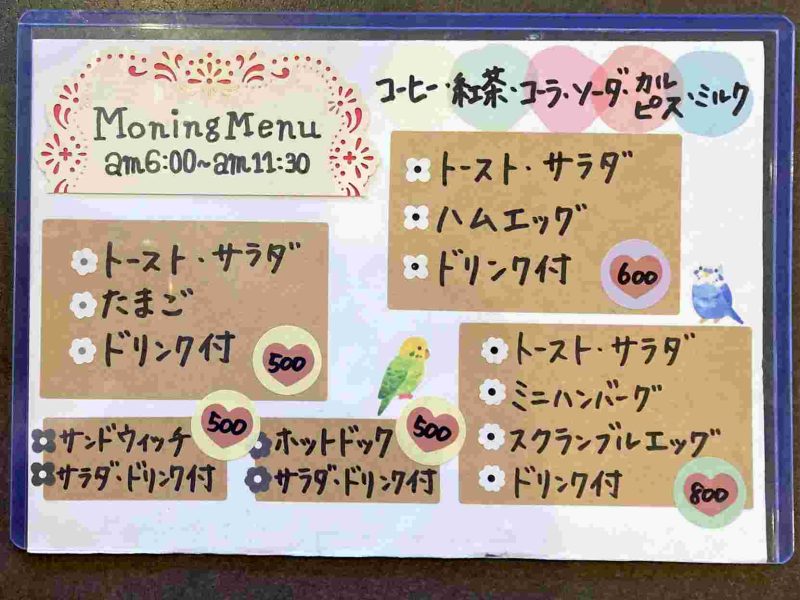 Moning Menu
am6:00~am11:30
コーヒー・紅茶・コーラ・ソーダ・カルピス・ミルク
トースト・サラダ
たまご
ドリンク付
500
トースト・サラダ
ハムエッグ
ドリンク付
600
サンドウィッチ
サラダ・ドリンク付
500
ホットドック
サラダ・ドリンク付
500
トースト・サラダ
ミニハンバーグ
スクランブルエッグ
ドリンク付
800